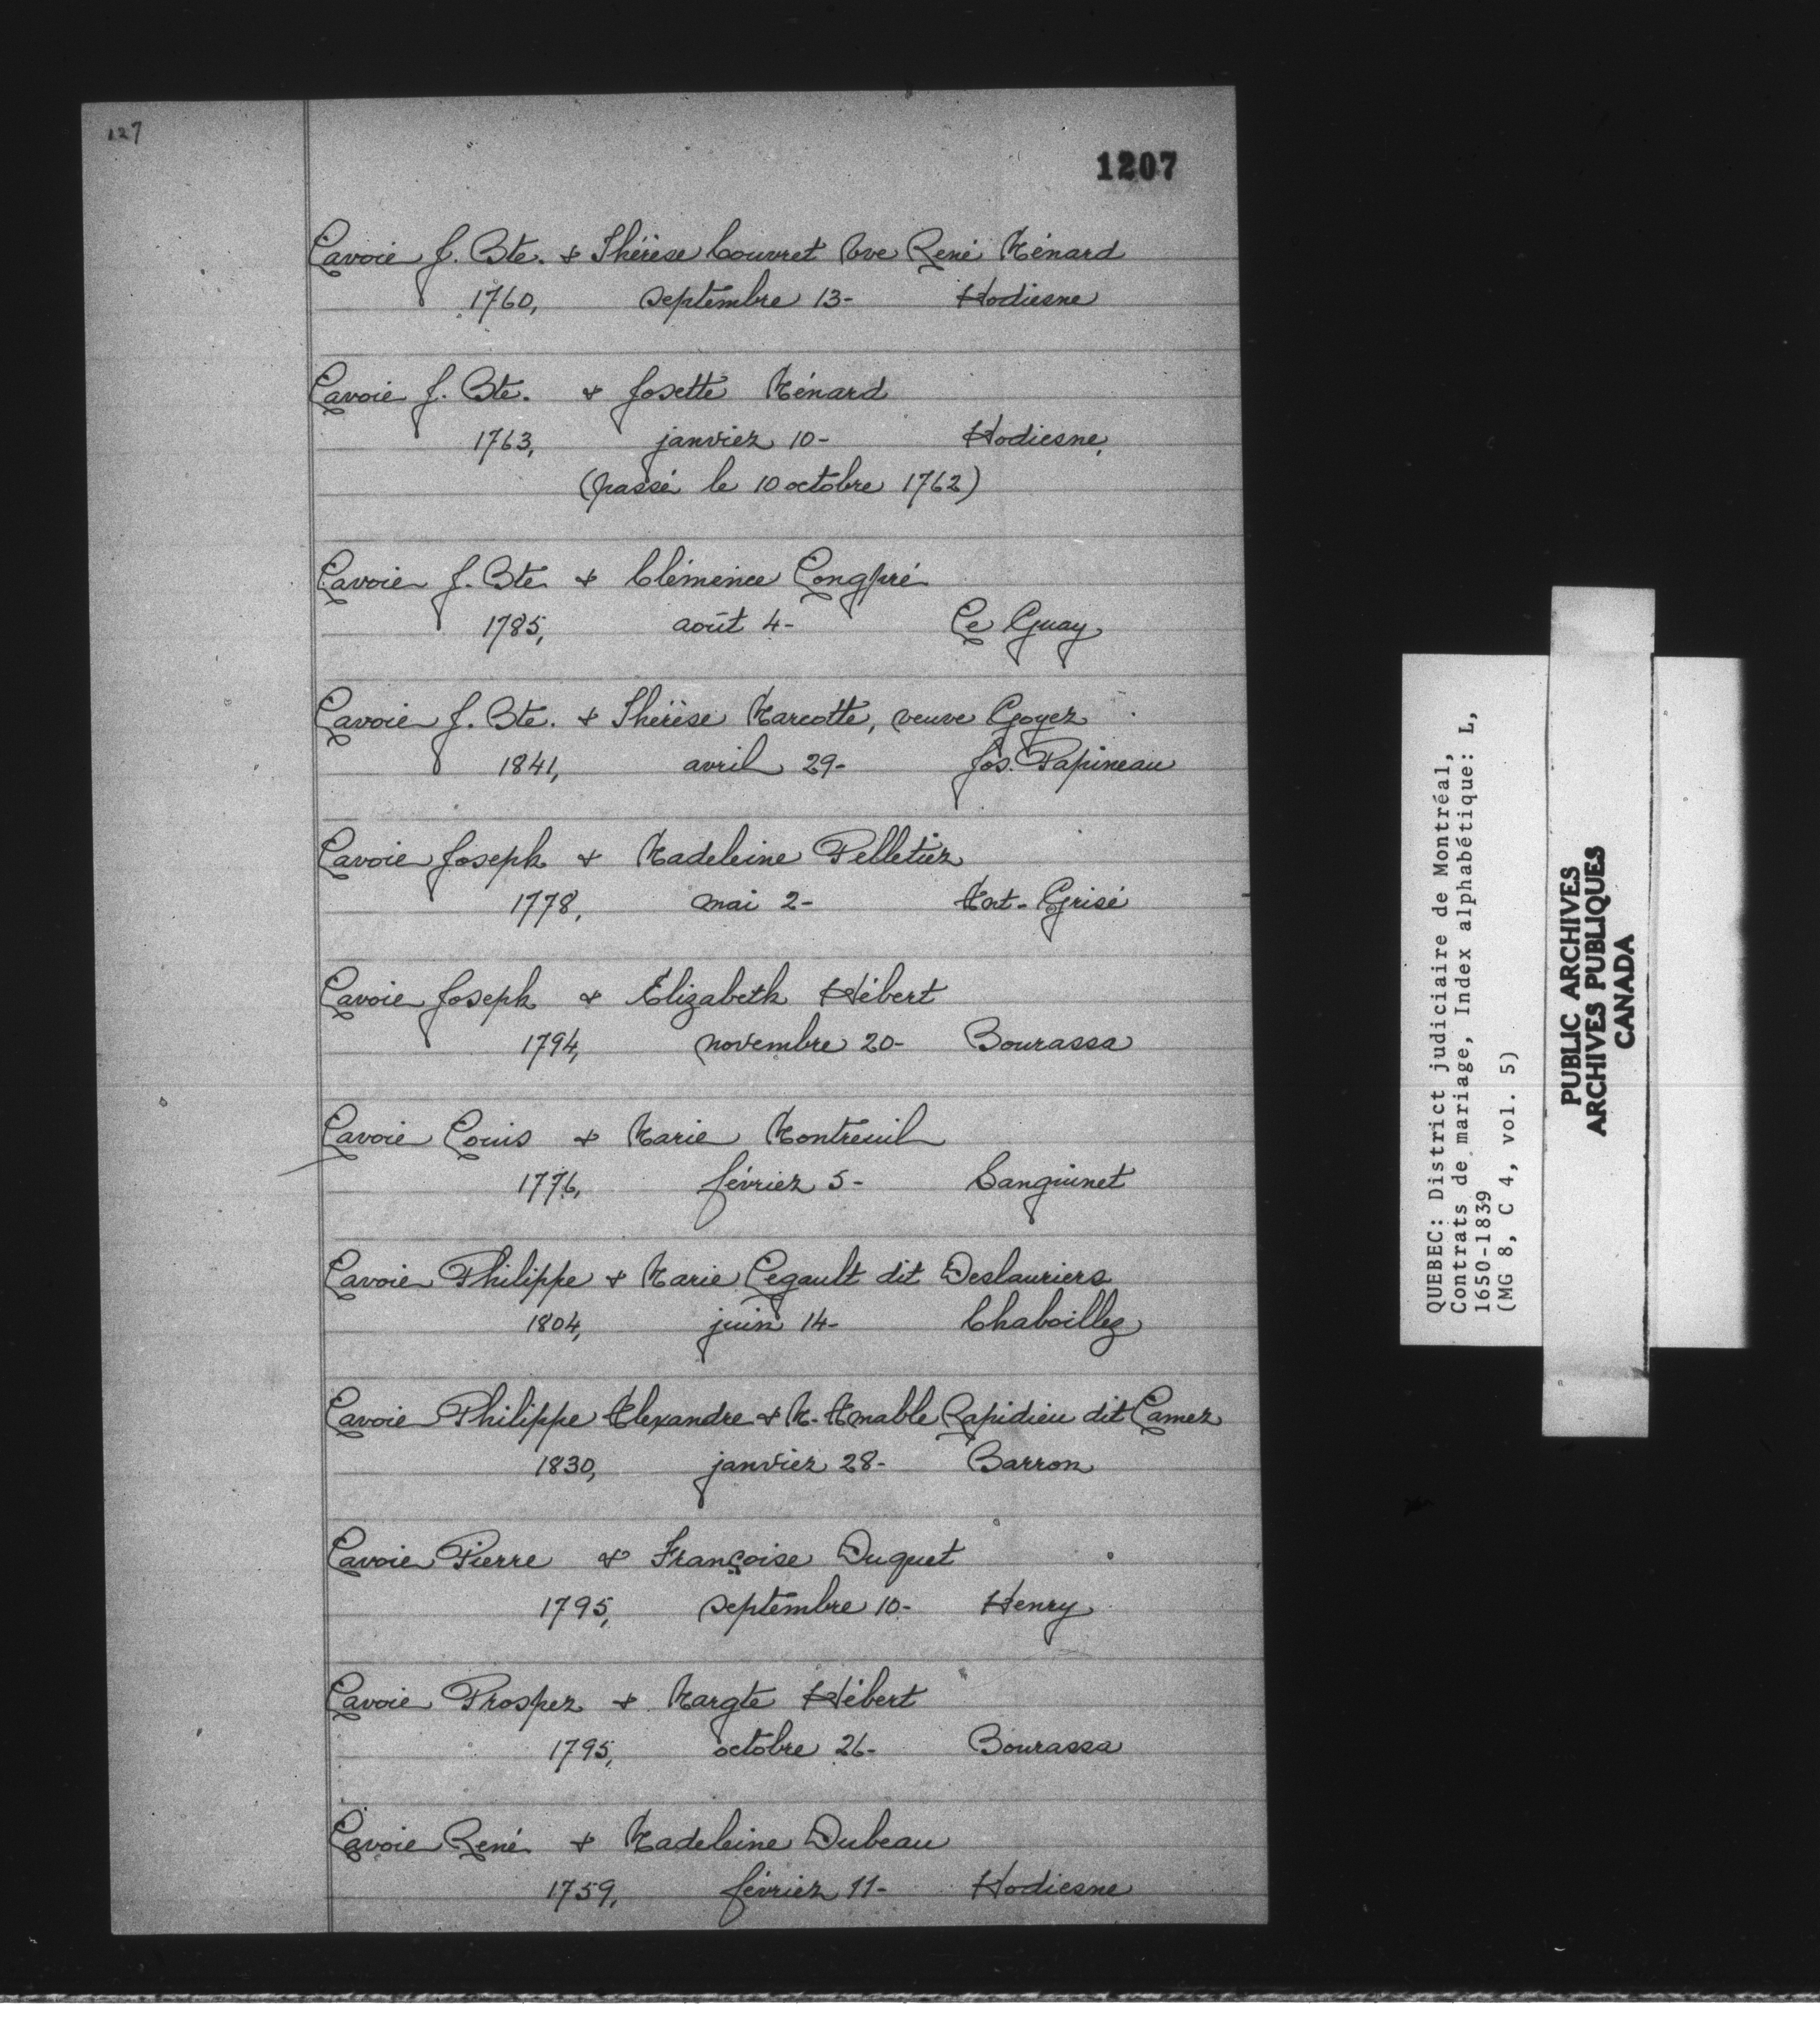 127
1207
Lavoie J. Bte. & Thérèse Couvret Vve René Ménard
1760, septembre 13- Hodiesne
Lavoie J. Bte. & Josette Ménard
1763, janvier 10- Hodiesne,
(passé le 10 octobre 1762)
Lavoie J. Bte & Clémence Longpré
1785, août 4- Le Guay
Lavoie J. Bte. & Thérèse Marcotte, veuve Goyer
1841, avril 29- Jos. Papineau
Lavoie Joseph & Madeleine Pelletier
1778, mai 2- Ant. Grisé
Lavoie Joseph & Elizabeth Hébert
1794, novembre 20- Bourassa
Lavoie Louis & Marie Montreuil
1776, février 5- Sanguinet
Lavoie Philippe & Marie Legault dit Deslauriers
1804, juin 14- Chaboillez
Lavoie Philippe Alexandre & M. Amable Rapidieu dit Lamer
1830, janvier 28- Barron
Lavoie Pierre & Françoise Duquet
1795, septembre 10- Henry
Lavoie Prosper & Margte Hébert
1795, octobre 26- Bourassa
Lavoie René & Madeleine Dubeau
1759, février 11- Hodiesne
QUEBEC: District judiciaire de Montréal,
Contrats de mariage, Index alphabétique: L,
1650-1839
(MG 8, C 4, vol. 5)
PUBLIC ARCHIVES
ARCHIVES PUBLIQUES
CANADA